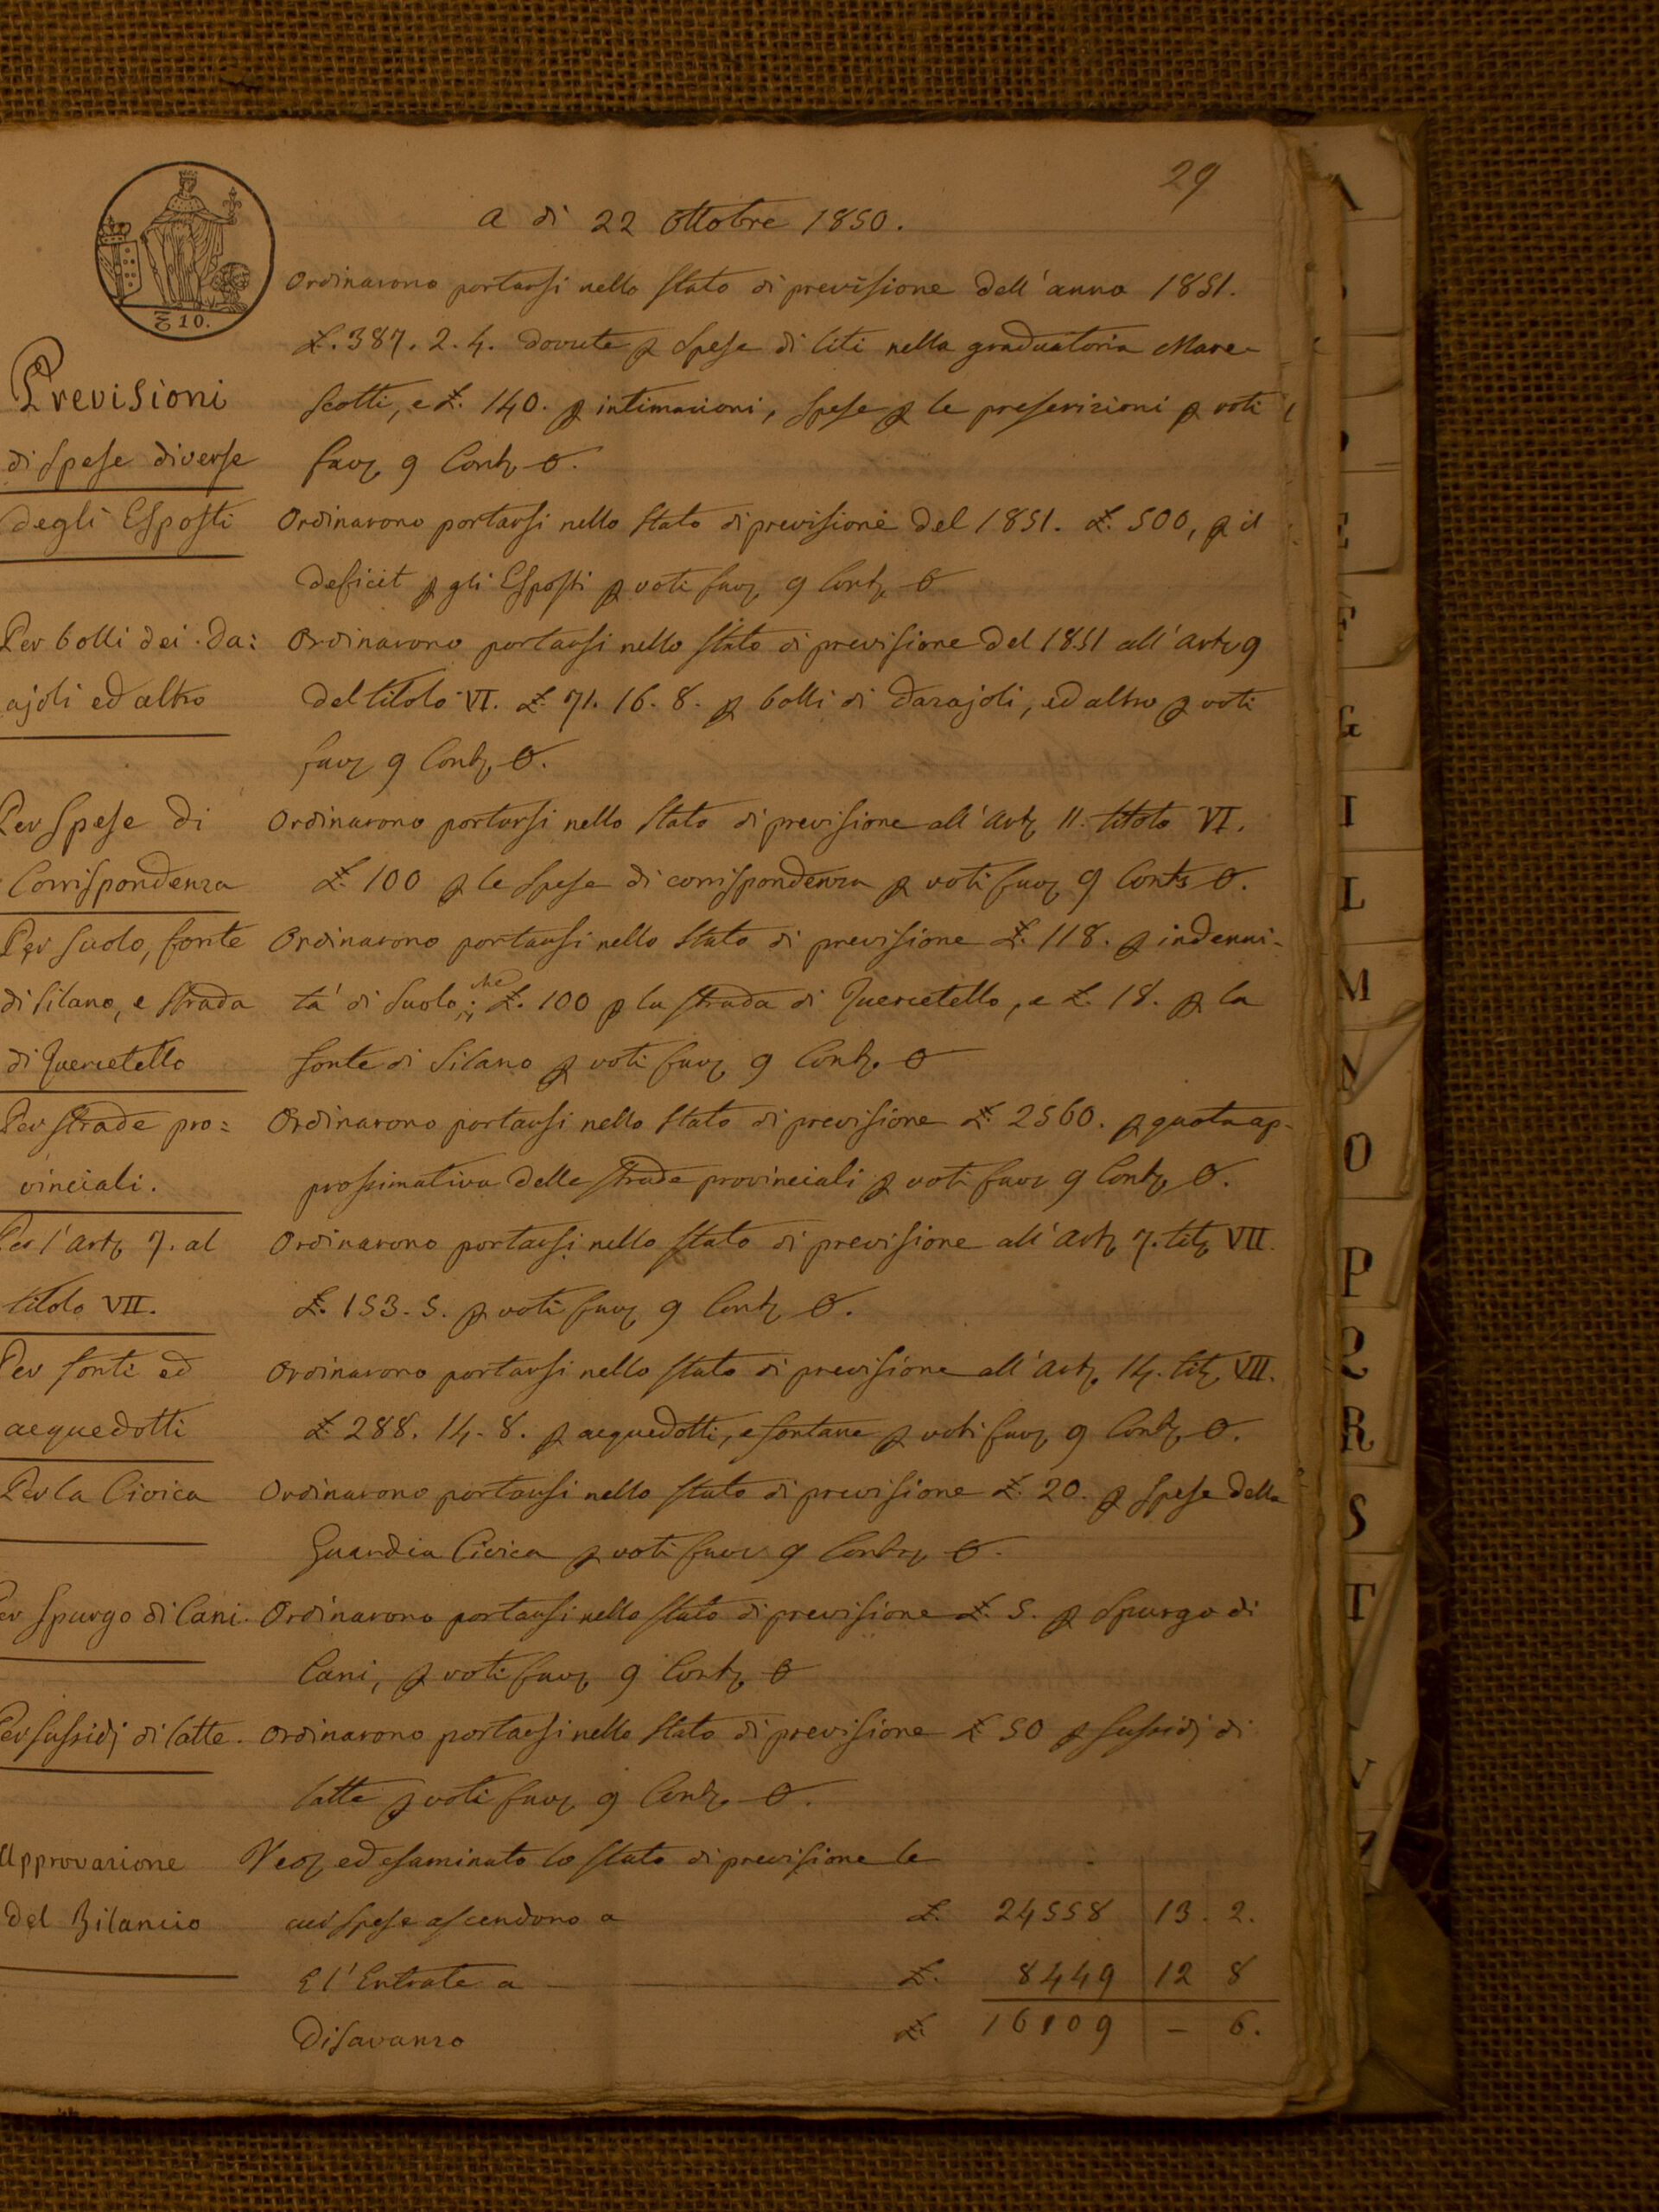 29
a di 22 Ottobre 1850.
10.
Previsioni
di Spese diverse
Ordinarono portarsi nello Stato di previsione dell'anno 1851.
£. 387. 2. 4. dovute p Spese di liti nella graduatoria Mare-
scotti, e £. 140. p intimazioni, Spese p le preserizioni p voti
favz 9 Contz 0.
degli Esposti
Ordinarono portarsi nello Stato di previsione del 1851. £. 500, p il
deficit p gli Esposti p voti favz 9 Contz 0
Per bolli dei Da:
ajoli ed altro
Ordinarono portarsi nello Stato di previsione del 1851 all'Artz 9
del titolo VI. £. 71. 16. 8. p bolli di Dazajoli, ed altro p voti
favz 9 Contz 0.
Per Spese di
Corrispondenza
Ordinarono portarsi nello Stato di previsione all'Artz 11. titolo VI.
£. 100 p le Spese di corrispondenza p voti favz 9 Contz 0.
Per Suolo, fonte
di Silano, e Strada
di Quercetello
Ordinarono portarsi nello Stato di previsione £. 118. p indenni-
tà di Suolo; £. 100 p la Strada di Quercetello, e £. 18. p la
fonte di Silano p voti favz 9 Contz 0
Per Strade pro:
vinciali.
Ordinarono portarsi nello Stato di previsione £. 2560. p quota ap-
prossimativa delle Strade provinciali p voti favz 9 Contz 0.
Per l'Artz 7. al
titolo VII.
Ordinarono portarsi nello Stato di previsione all'Artz 7. titz VII.
£. 153. 5. p voti favz 9 Contz 0.
Per fonti ed
acquedotti
Ordinarono portarsi nello Stato di previsione all'Artz 14. titz VII.
£. 288. 14. 8. p acquedotti, e fontane p voti favz 9 Contz 0.
Per la Civica
Ordinarono portarsi nello Stato di previsione £. 20. p Spese della
Guardia Civica p voti favz 9 Contz 0.
Per Spurgo di Cani.
Ordinarono portarsi nello Stato di previsione £. 5. p Spurgo di
Cani, p voti favz 9 Contz 0
Per Sussidj di latte.
Ordinarono portarsi nello Stato di previsione £ 50 p Sussidj di
latte p voti favz 9 Contz 0.
Approvazione
del Bilancio
ed esaminato lo Stato di previsione le
cui Spese ascendono a £. 24558 13. 2.
E l'Entrate a £. 8449 12 8
Disavanzo £ 16109 – 6.
E
F
G
I
L
M
N
O
P
Q
R
S
T
V
Z